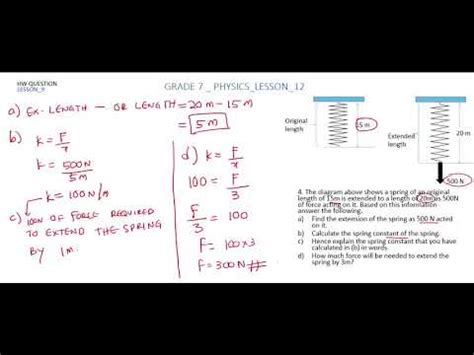 HW QUESTION
LESSON_9
GRADE 7 _ PHYSICS_LESSON_12
a) EX-LENGTH — OR LENGTH = 20m - 15m
= 5m
b) k = F/x
k = 500N/5m
k = 100N/m
c) 100N OF FORCE REQUIRED
TO EXTEND THE SPRING
BY 1m.
d) k = F/x
100 = F/3
F/3 = 100
F = 100 x 3
F = 300N
Original
length
15 m
Extended
length
20 m
500 N
4. The diagram above shows a spring of an original
length of 15m is extended to a length of 20m as 500N
of force acting on it. Based on this information
answer the following.
a) Find the extension of the spring as 500 N acted
on it.
b) Calculate the spring constant of the spring.
c) Hence explain the spring constant that you have
calculated in (b) in words.
d) How much force will be needed to extend the
spring by 3m?